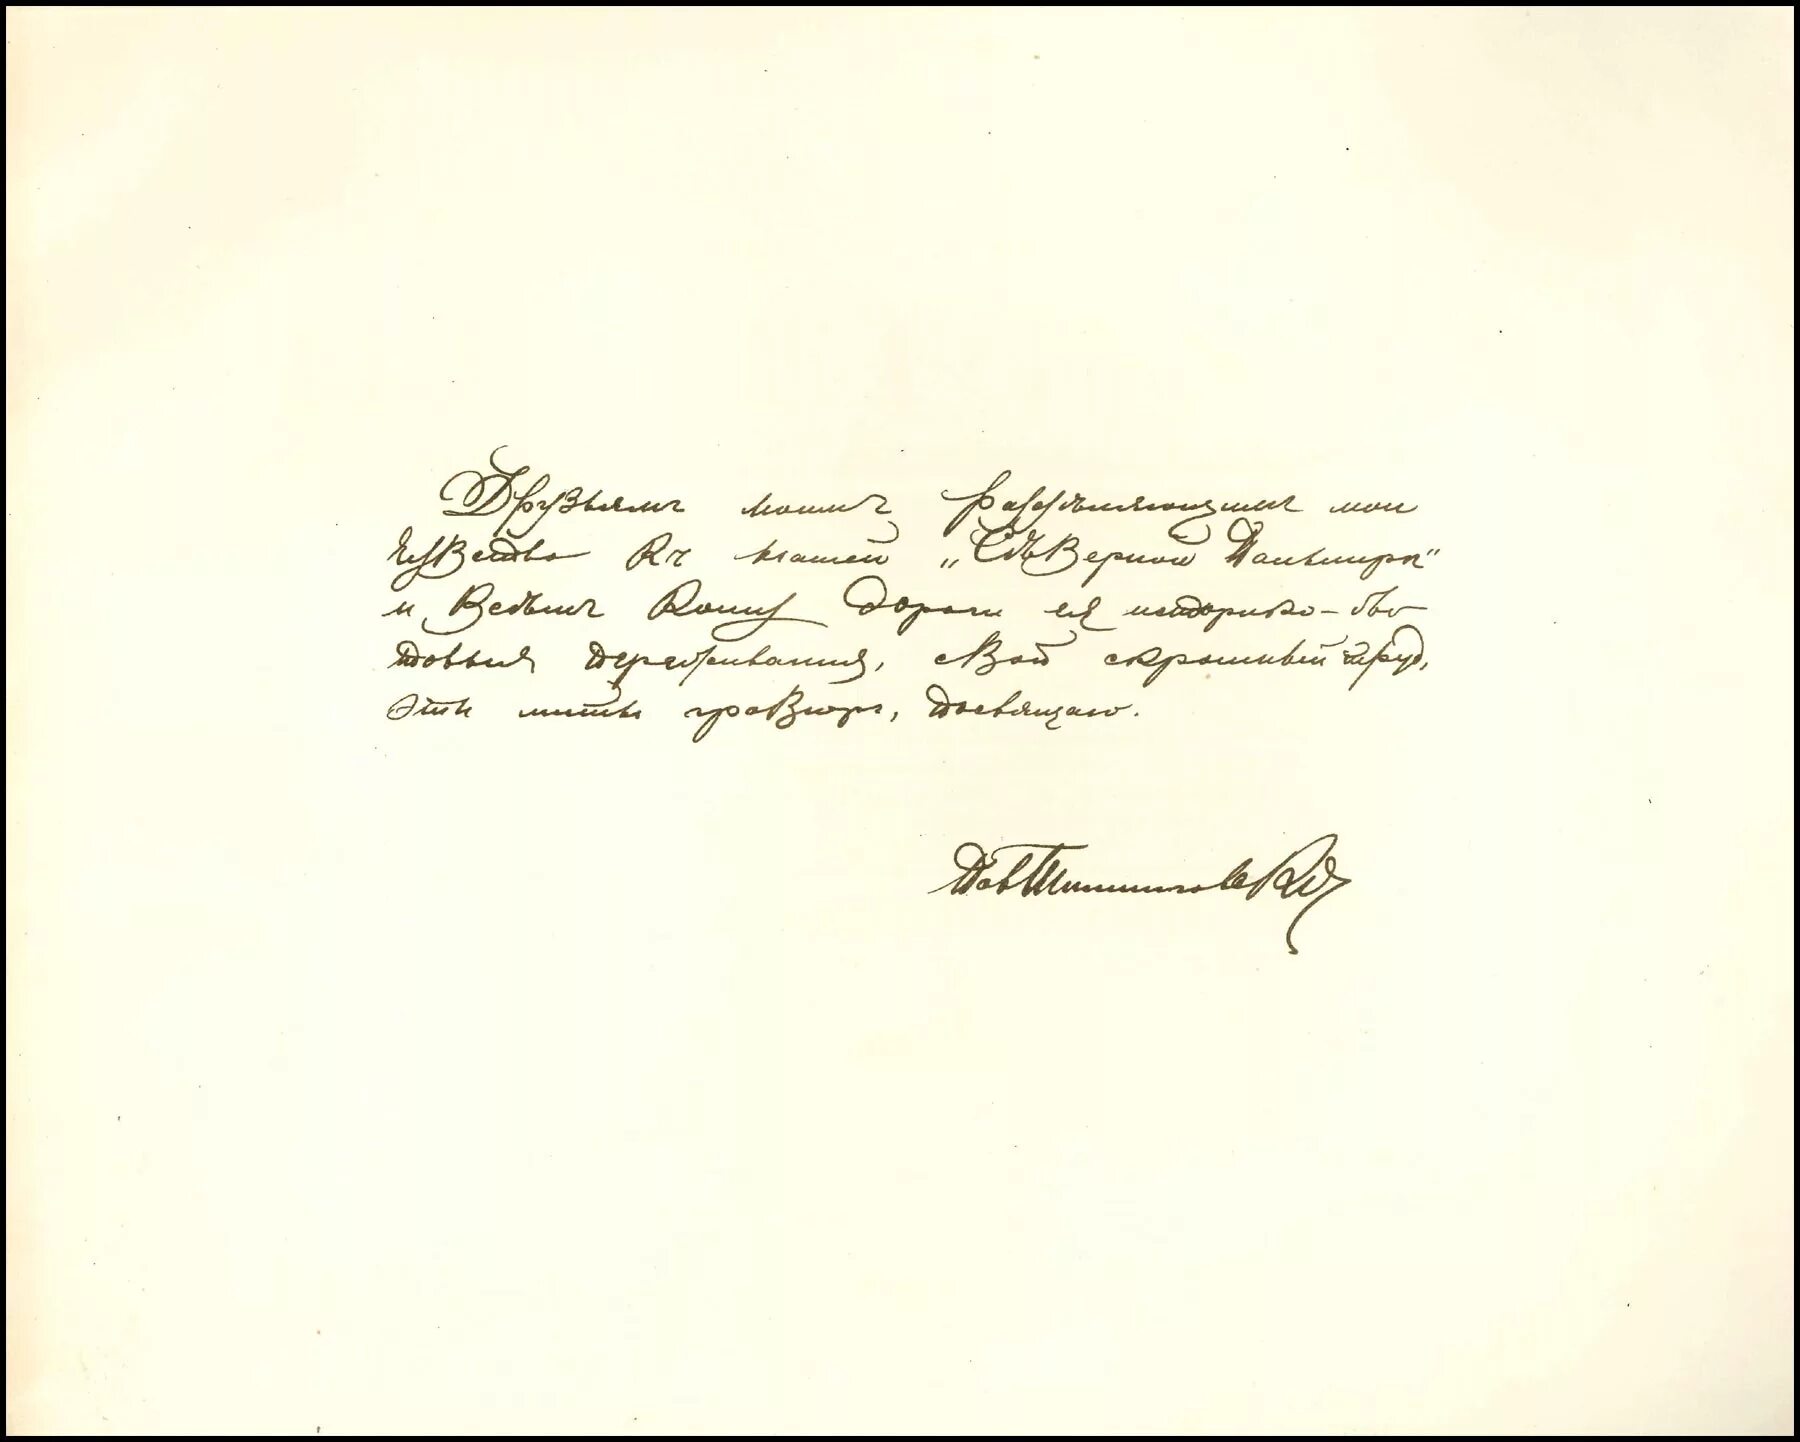 Друзьямъ моимъ, раздѣляющимъ мои
чувства къ нашей „Сѣверной Пальмирѣ“
и всѣмъ кому дороги ея историко-бы-
товыя переживанія, свой скромный трудъ,
эти листы гравюръ, посвящаю.